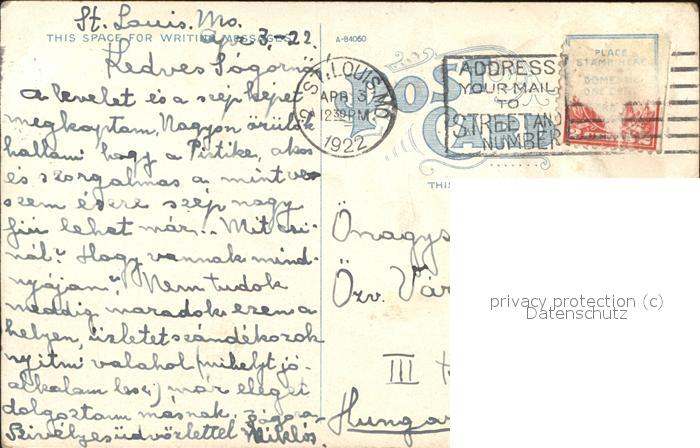 St. Louis. Mo.
THIS SPACE FOR WRITING MESSAGES
Apr. 3.-22.
A-84060
Kedves Sógornő
A levelet és a szép képet
megkaptam, Nagyon örülök
hallani hogy a Pistike, okos
és szorgalmas a mint ve-
szem észre szép nagy
fiú lehet már.. Mit csi-
nál? Hogy vannak mind-
nyájan? Nem tudok
meddig maradok ezen a
helyen, üzletet szándékozok
nyitni valahol (mihelyt jó
alkalom lesz) már eleget
dolgoztam másnak. Sógora
Szivélyes üdvözlettel Miklós.
POST CARD
ST. LOUIS, MO.
APR 3
12 30 PM
1922
ADDRESS
YOUR MAIL
TO
STREET AND
NUMBER
PLACE
STAMP HERE
DOMESTIC
ONE CENT
THIS
Önagys
Özv. Vár
III
Hungar
privacy protection (c)
Datenschutz